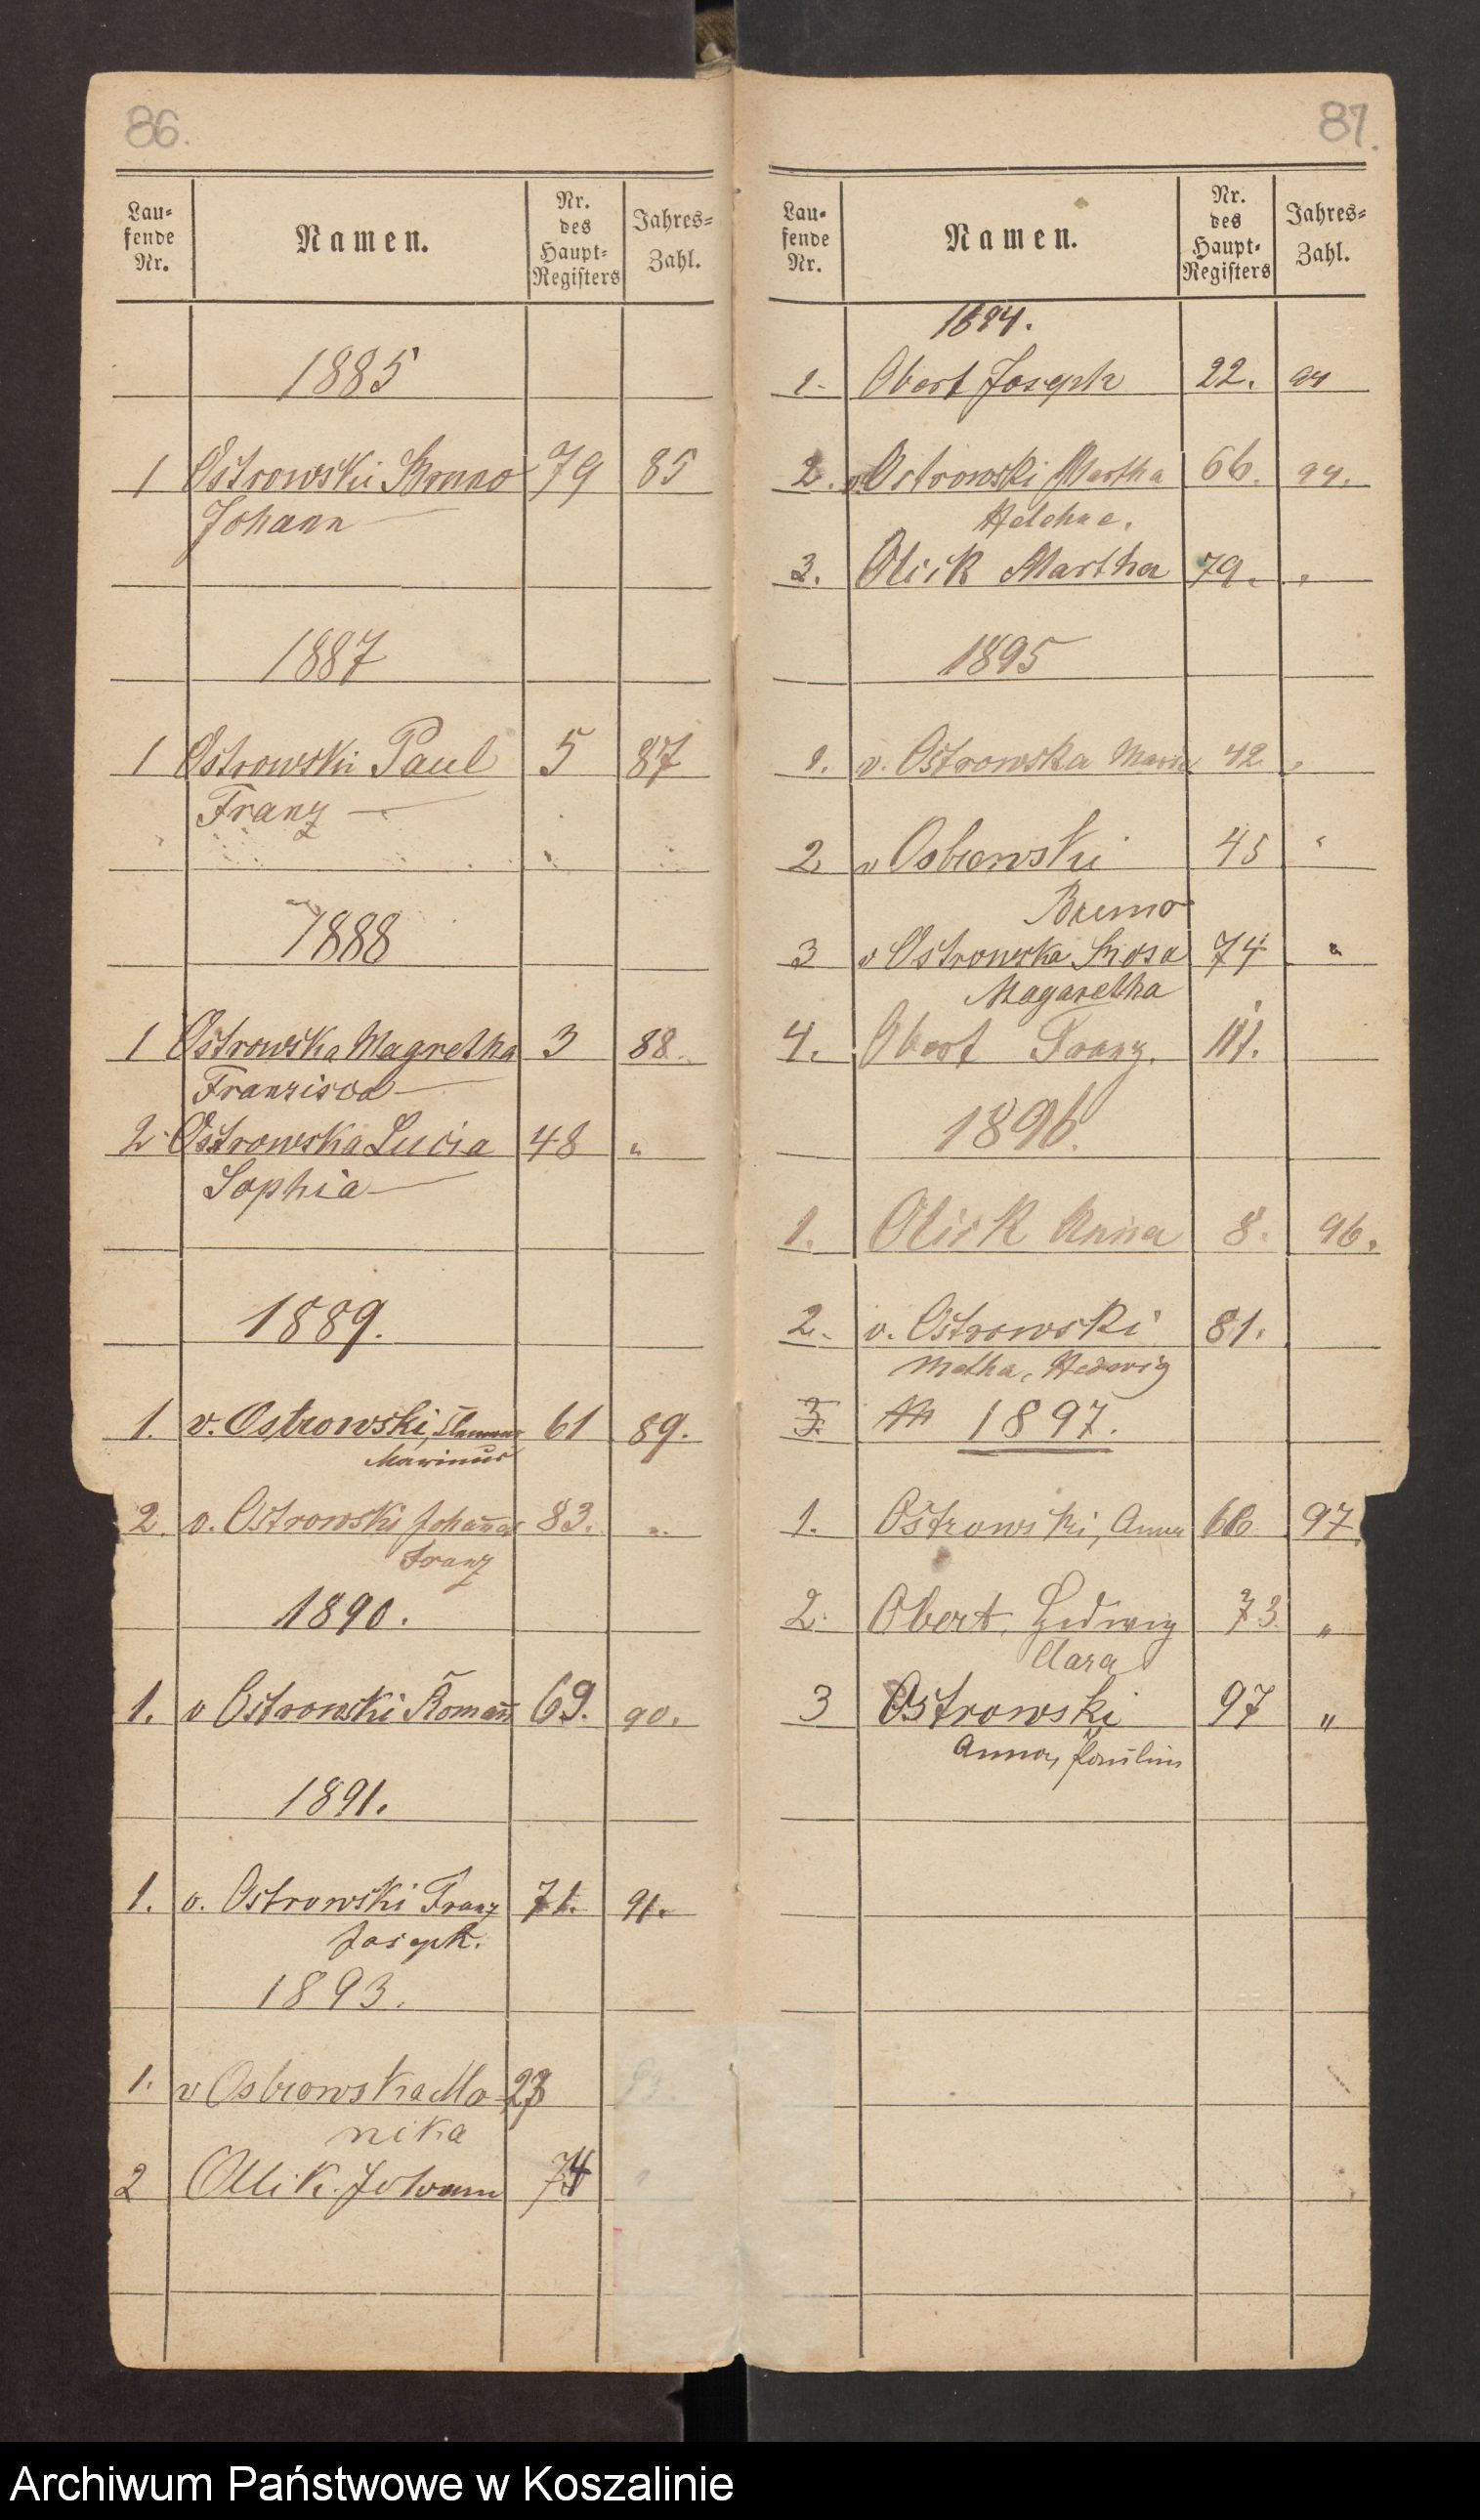 86.
Lau-
fende
Nr.
Namen.
Nr.
des
Haupt-
Registers
Jahres-
Zahl.
1885
1 Ostrowski Bruno 79 85
Johann
1887
1 Ostrowski Paul 5 87
Franz
1888
1 Ostrowska Magretha 3 88.
Franzisca
2 Ostrowska Lucia 48 "
Sophia
1889.
1. v. Ostrowski, 61 89.
2. v. Ostrowski Johannes 83. ".
Franz
1890.
1. v Ostrowski Roman 69. 90.
1891.
1. v. Ostrowski Franz 71. 91.
Joseph.
1893.
1. v Ostrowska Mo- 23
nika
2 Ollik Johann 74
87.
Lau-
fende
Nr.
Namen.
Nr.
des
Haupt-
Registers
Jahres-
Zahl.
1894.
1. Obert Joseph 22. 94
2. v Ostrowski Martha 66. 94.
Helene.
3. Olik Martha 79. "
1895
1. v. Ostrowska Maria 42 "
2 v Ostrowski 45 "
Bruno
3 v Ostrowska Rosa 74 "
Magaretha
4. Obert Franz. 111.
1896.
1. Olik Anna 8. 96.
2. v. Ostrowski 81.
Metha, Hedwig
3. 1897.
1. Ostrowski, Anna 66 97.
2. Obert, Hedwig 73. "
Clara
3 Ostrowski 97 "
Anna, Paulina
Archiwum Państwowe w Koszalinie